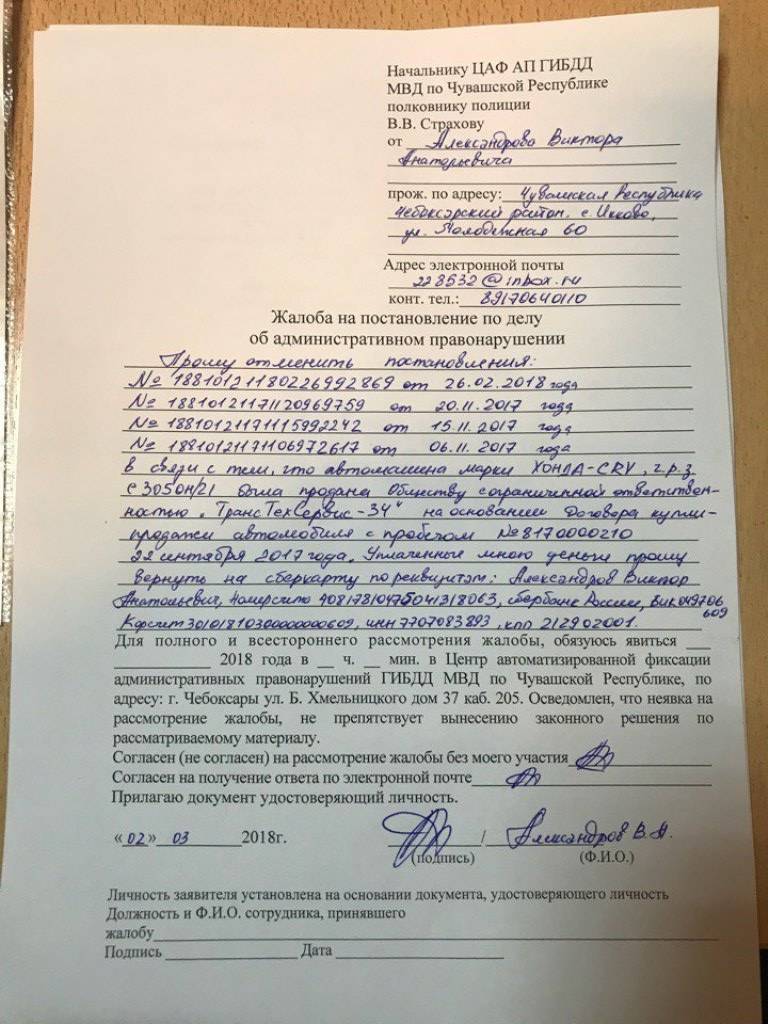 Начальнику ЦАФ АП ГИБДД
МВД по Чувашской Республике
полковнику полиции
В.В. Страхову
от Александрова Виктора
Анатольевича
прож. по адресу: Чувашская Республика
Чебоксарский район. с. Икково,
ул. Молодежная 60
Адрес электронной почты
228532@inbox.ru
конт. тел.: 89170640110
Жалоба на постановление по делу
об административном правонарушении
Прошу отменить постановления:
№ 18810121180226992869 от 26.02.2018 года
№ 18810121171120969759 от 20.11.2017 года
№ 18810121171115992242 от 15.11.2017 года
№ 18810121171106972617 от 06.11.2017 года
в связи с тем, что автомашина марки ХОНДА-CRV, г.р.з
С305ОН/21 была продана Обществу с ограниченной ответствен-
ностью „ТрансТехСервис-34" на основании Договора купли-
продажи автомобиля с пробегом №8170000210
22 сентября 2017 года. Уплаченные мною деньги прошу
вернуть на сберкарту по реквизитам: Александров Виктор
Анатольевич, Номер счета 40817810475041318063, сбербанк России, БИК 049706
609
Кор счет 30101810300000000609, ИНН 7707083893, КПП 212902001.
Для полного и всестороннего рассмотрения жалобы, обязуюсь явиться ___
____________ 2018 года в __ ч. __ мин. в Центр автоматизированной фиксации
административных правонарушений ГИБДД МВД по Чувашской Республике, по
адресу: г. Чебоксары ул. Б. Хмельницкого дом 37 каб. 205. Осведомлен, что неявка на
рассмотрение жалобы, не препятствует вынесению законного решения по
рассматриваемому материалу.
Согласен (не согласен) на рассмотрение жалобы без моего участия
Согласен на получение ответа по электронной почте
Прилагаю документ удостоверяющий личность.
«02» 03 2018г. / Александров В.А.
(подпись) (Ф.И.О.)
Личность заявителя установлена на основании документа, удостоверяющего личность
Должность и Ф.И.О. сотрудника, принявшего
жалобу
Подпись ________________ Дата ____________________